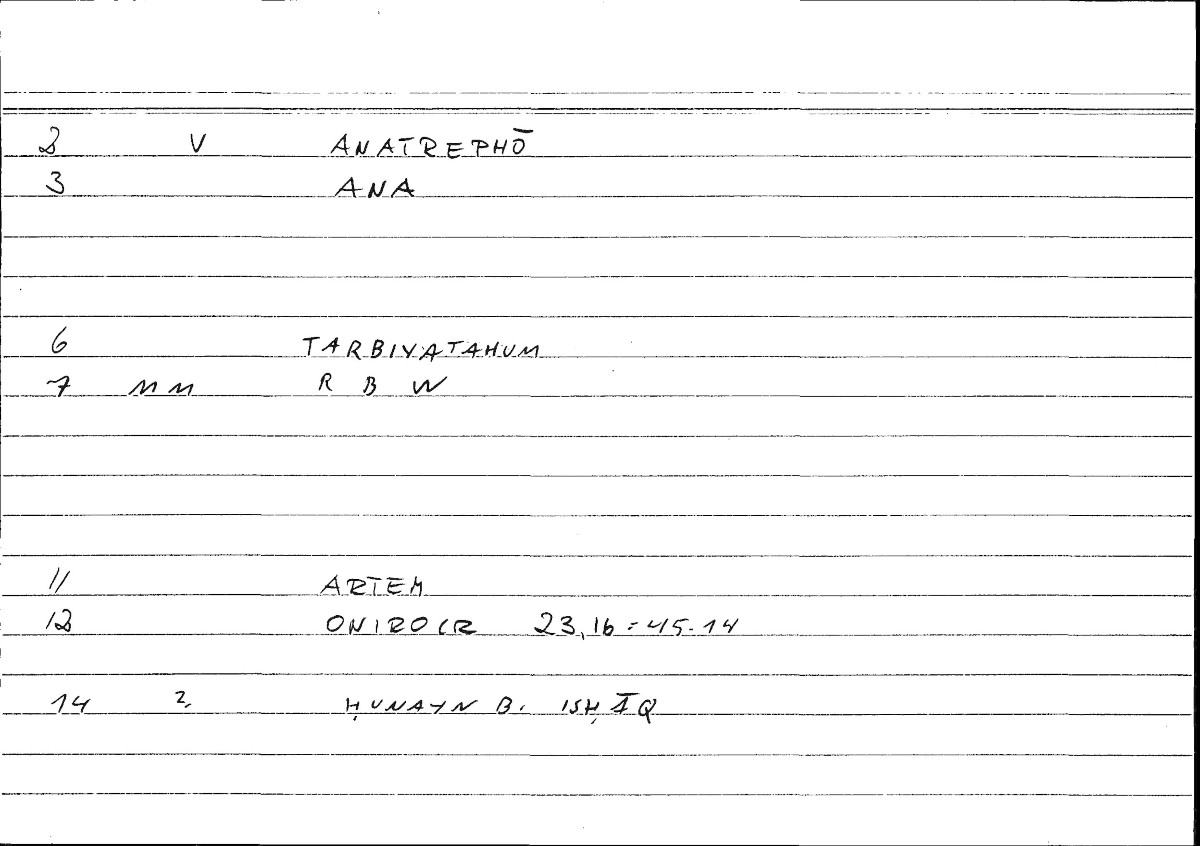 2 V ANATREPHŌ
3 ANA
6 TARBIYATAHUM
7 MM R B W
11 ARTEM
12 ONIROCR 23,16 = 45.14
14 2. ḤUNAYN B. ISḤĀQ